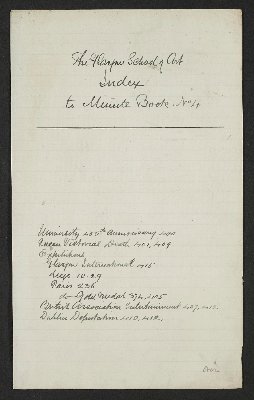 The Glasgow School of Art
Index
to Minute Book No
University 450th Anniversary
Queen Victoria's Death 401, 409
Exhibitions
Glasgow International 415
Paris
do Gold Medal 374, 405
British Association Entertainment 407, 410
Dublin Deputation 410, 412,
Over